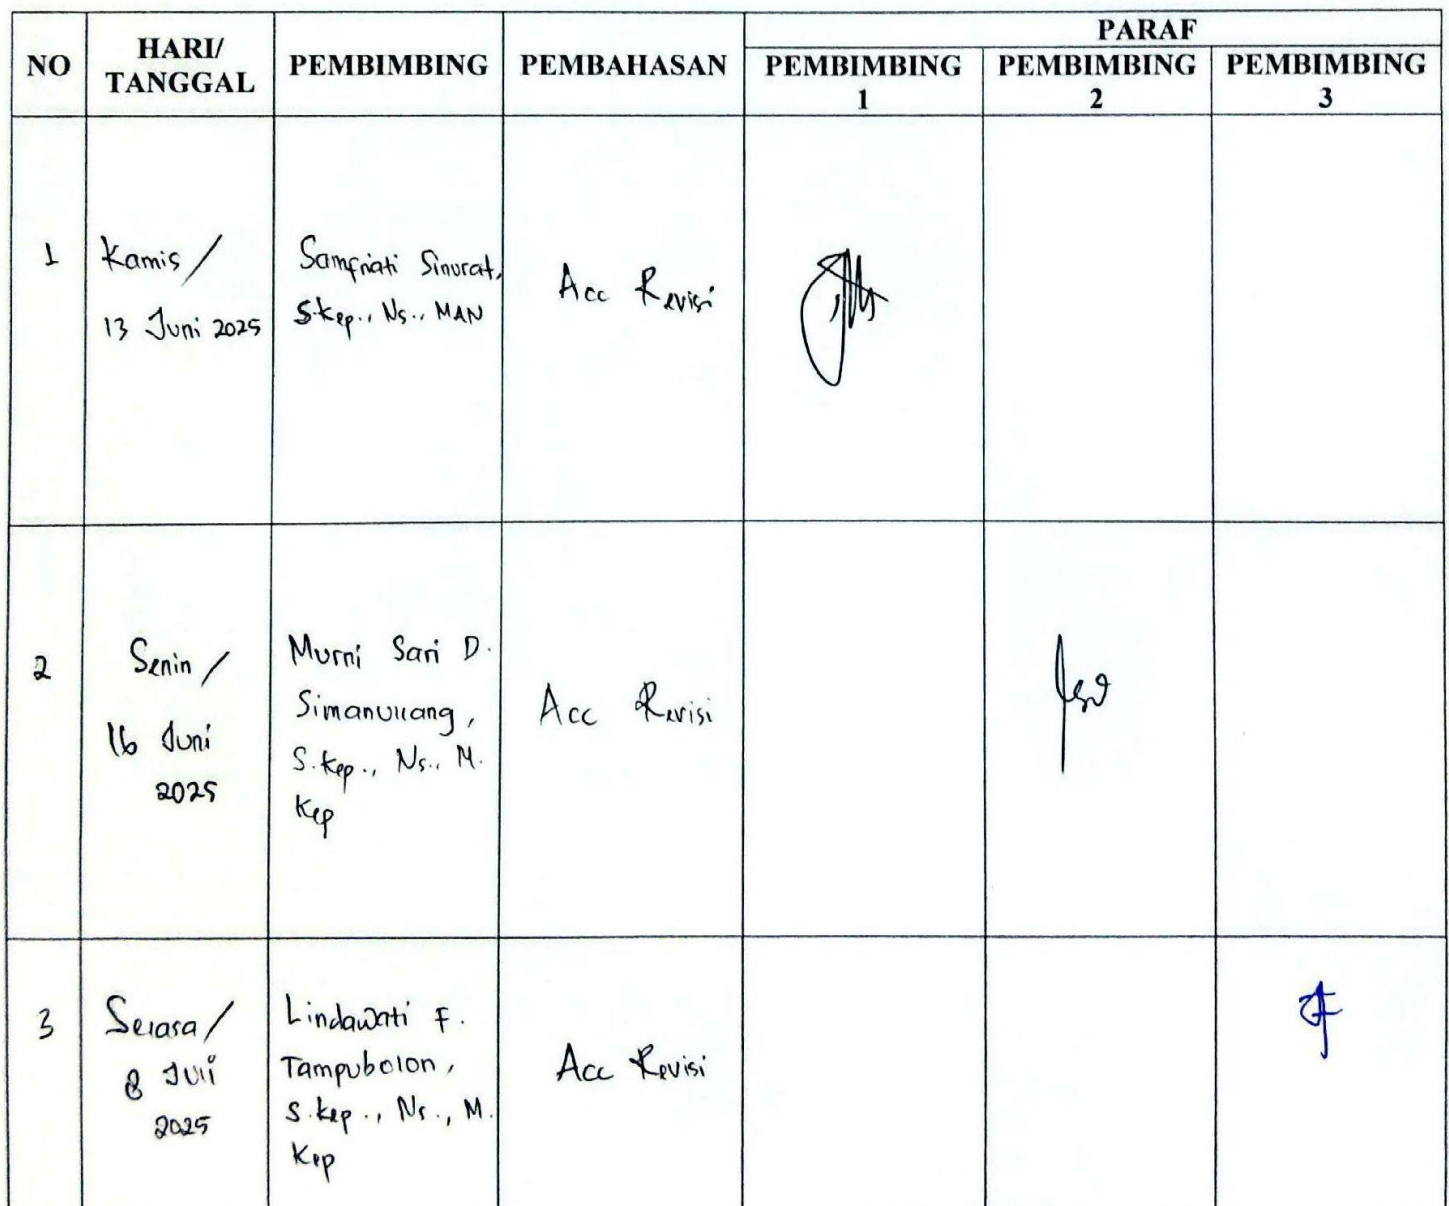 PARAF
NO HARI/ TANGGAL PEMBIMBING PEMBAHASAN PEMBIMBING 1 PEMBIMBING 2 PEMBIMBING 3
1
Kamis /
13 Juni 2025
Samfriati Sinurat,
S.Kep., Ns., MAN
Acc Revisi
2
Senin /
16 Juni
2025
Murni Sari D.
Simanullang,
S.Kep., Ns., M.
Kep
Acc Revisi
3
Selasa /
8 Juli
2025
Lindawati F.
Tampubolon,
S.Kep., Ns., M.
Kep
Acc Revisi